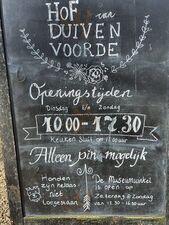 HOF van
DUIVEN
VOORDE
Openingstijden
Dinsdag t/m Zondag
10.00-17.30
Keuken sluit om 17.00uur
Alleen pin mogelijk
Honden
zijn helaas
Niet
toegestaan
De Museumwinkel
is open op
Zaterdag & Zondag
van 13.30 - 16.30uur